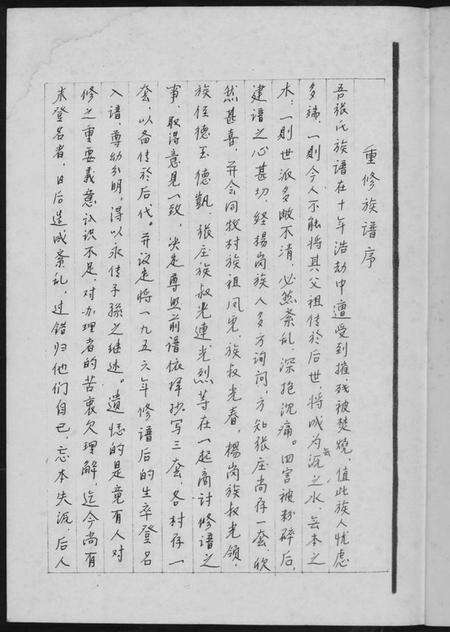 重修族谱序
吾张氏族谱在十年浩劫中遭受到摧残被焚毁，值此族人忧虑
多端，一则今人不能将其父祖传於后世，将成为无沅之水，无本之
木；一则世派多敝不清，必然紊乱，深抱沉痛。四害被粉碎后，
建谱之心甚切，经杨岗族人多方询问，方知张庄尚存一套，欣
然甚喜，并会同牧村族祖凤先，族叔光春，杨岗族叔光领，
族侄德玉德凯，张庄族叔光连光烈等在一起商讨修谱之
事，取得意见一致，决定尊照前谱依样抄写三套，各村存一
套，以备传於后代，并议定将一九五六年修谱后的生卒登名
入谱，尊幼分明，得以永传子孫之继述。遗憾的是竟有人对
修之重要義意认识不足，对办理者的苦衷欠理解，迄今尚有
未登名者，日后造成紊乱，过错归他们自己，忘本失沅，后人